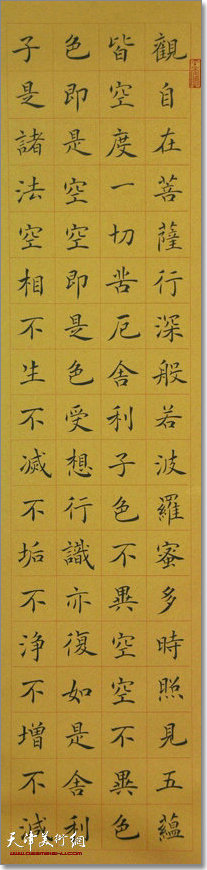 觀自在菩薩行深般若波羅蜜多時照見五蘊
皆空度一切苦厄舍利子色不異空空不異色
色即是空空即是色受想行識亦復如是舍利
子是諸法空相不生不滅不垢不淨不增不減
天津美術網